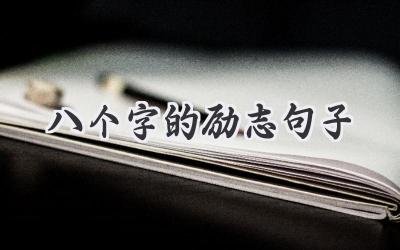 八个字的励志句子